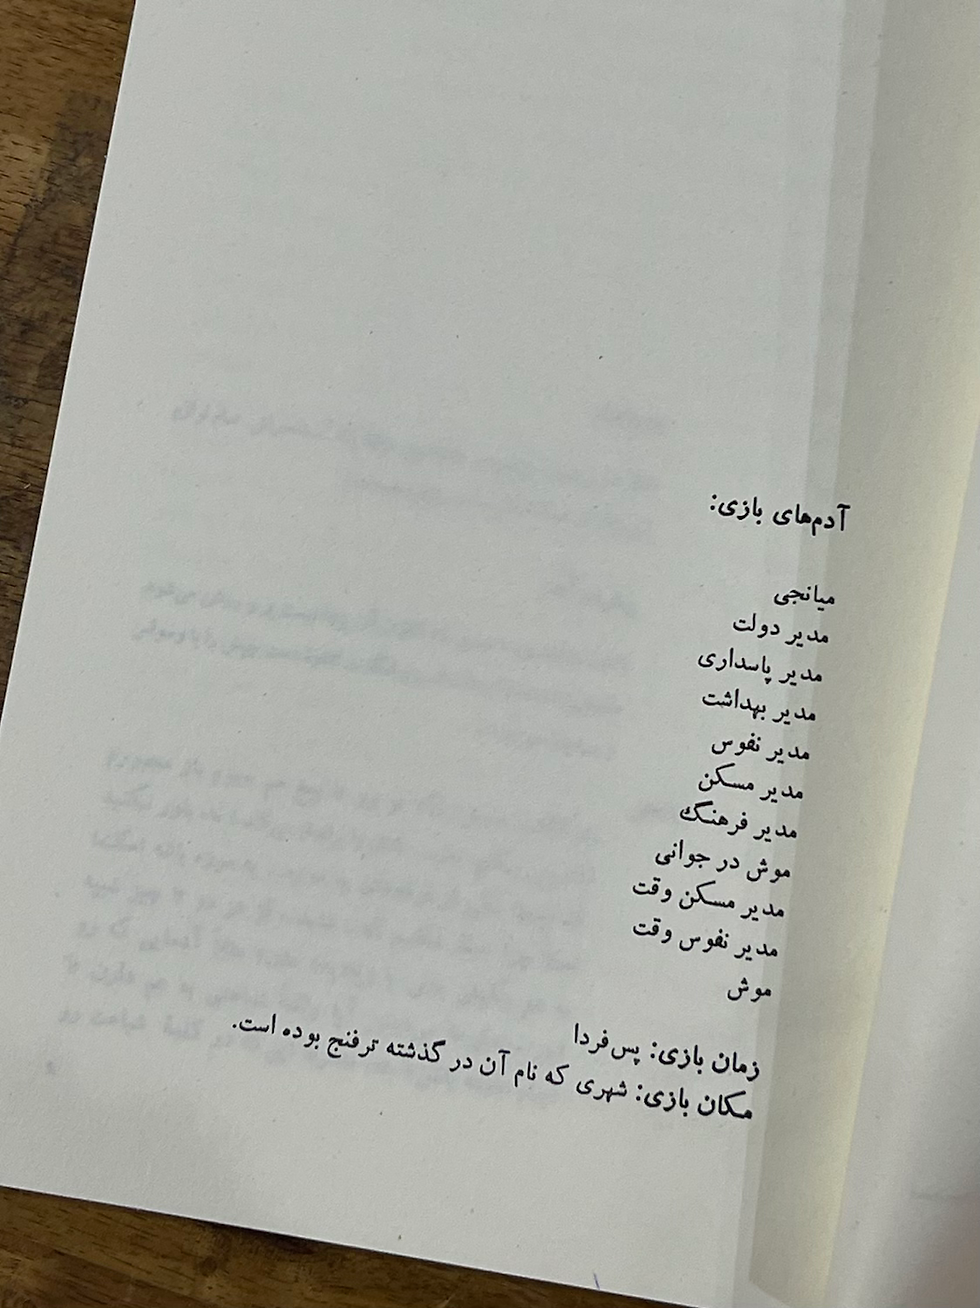 آدم‌های بازی:
میانجی
مدیر دولت
مدیر پاسداری
مدیر بهداشت
مدیر نفوس
مدیر مسکن
مدیر فرهنگ
موش در جوانی
مدیر مسکن وقت
مدیر نفوس وقت
موش
زمان بازی: پس‌فردا
مکان بازی: شهری که نام آن در گذشته ترفنج بوده است.